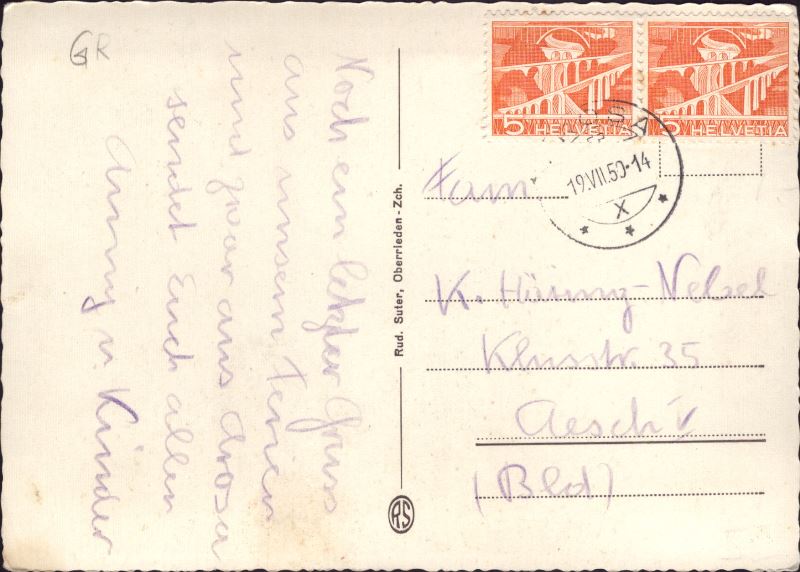 GR
Noch ein letzter Gruss
aus unsern Ferien
und zwar aus Arosa
sendet Euch allen
Anny u. Kinder
Rud. Suter, Oberrieden - Zch.
RS
5 HELVETIA
5 HELVETIA
19.VII.50-14
X
Fam.
K.
Klusstr. 35
Aesch
(Bld)